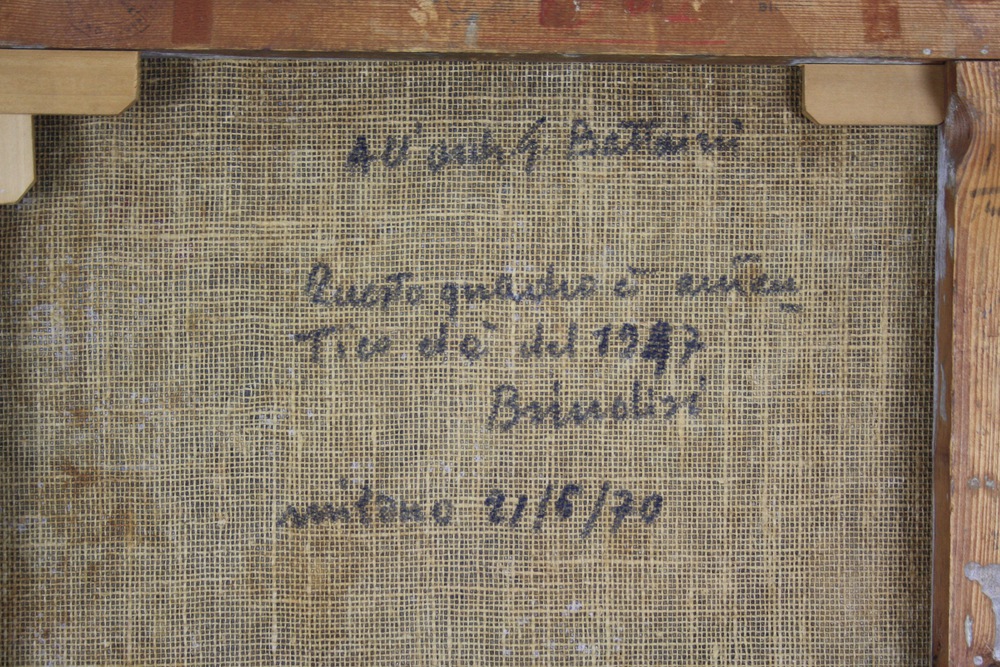 All' arch G. Battaini
Questo quadro è auten
Tico ed è del 1947
Brindisi
milano 21/6/70